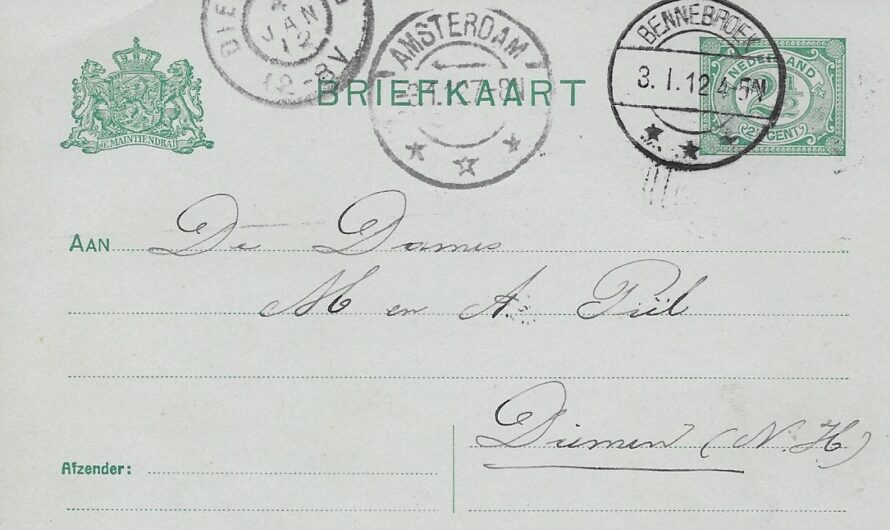 DIE
4
JAN
12
12-8V
AMSTERDAM
3.1.12 7-8N
BENNEBROEK
3.I.12 4-5N
NEDERLAND
2½
(2½ CENT)
JE MAINTIENDRAI
BRIEFKAART
AAN De Dames
M en A Piël
Diemen (N.H)
Afzender: